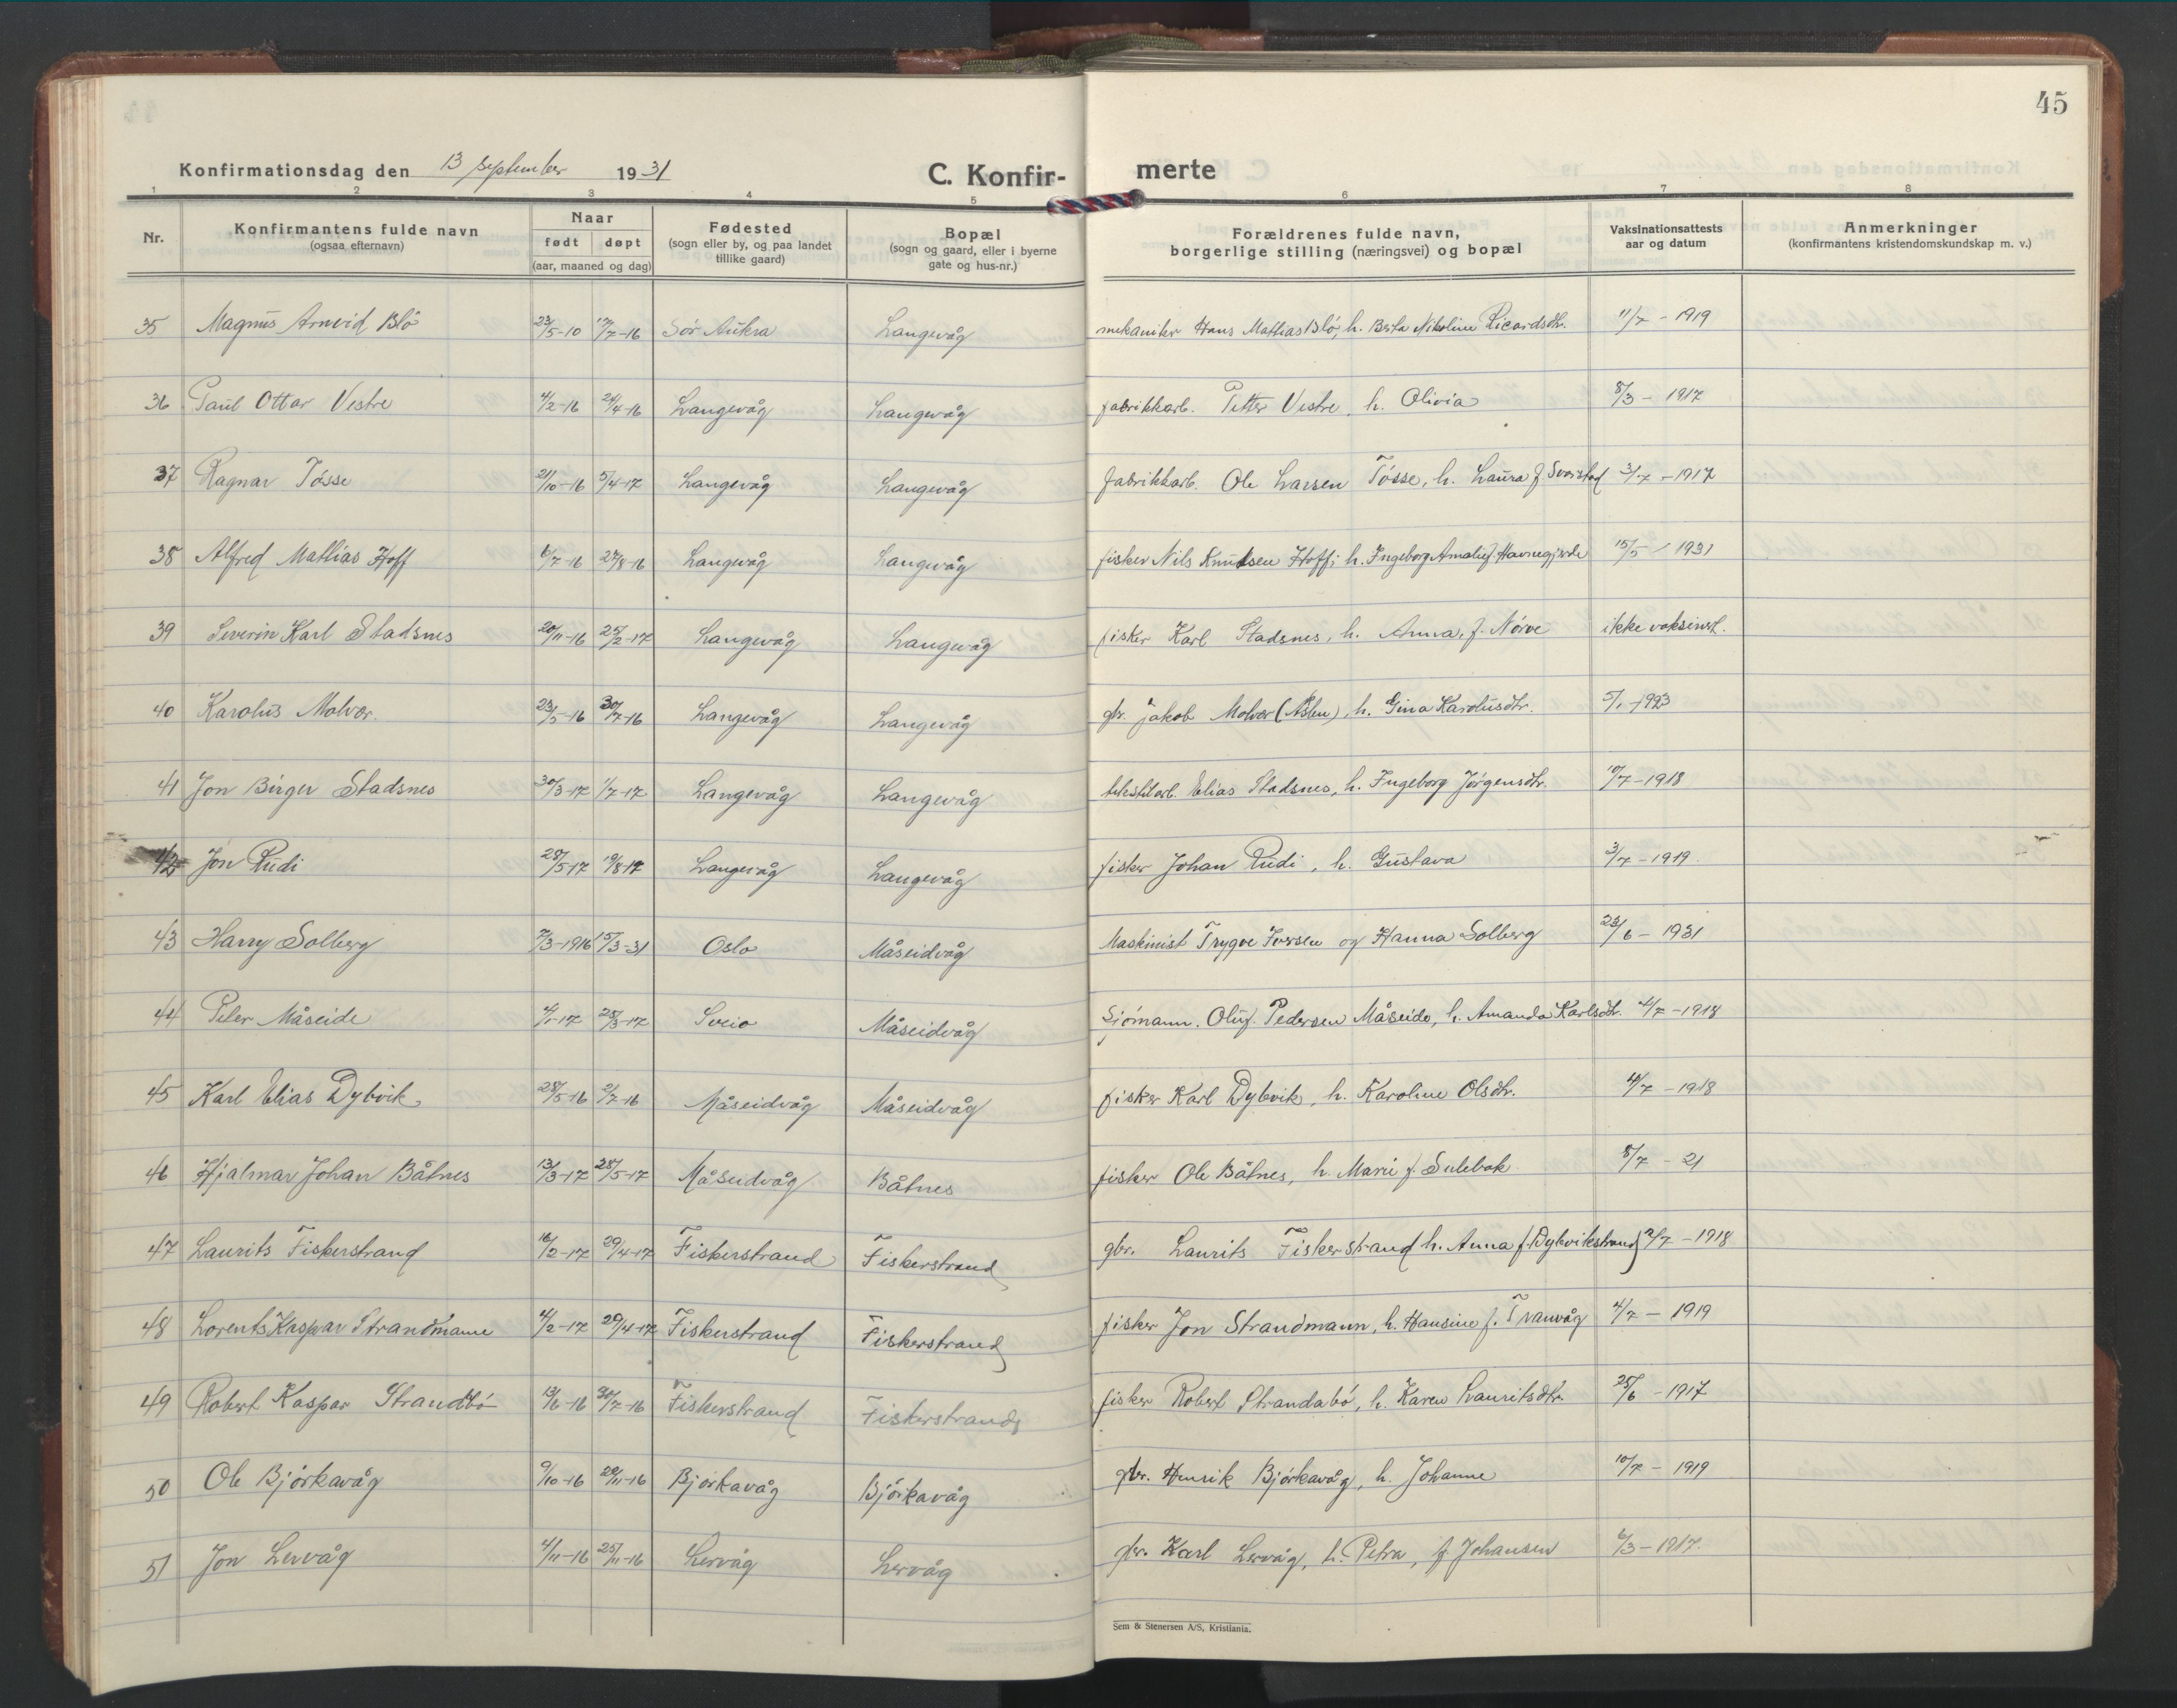 45
Konfirmationsdag den 13 september 1931 C. Konfir- merte
1 2 3 4 5 6 7 8
Nr. Konfirmantens fulde navn (ogsaa efternavn) Naar født døpt (aar, maaned og dag) Fødested (sogn eller by, og paa landet tillike gaard) Bopæl (sogn og gaard, eller i byerne gate og hus-nr.) Forældrenes fulde navn, borgerlige stilling (næringsvei) og bopæl Vaksinationsattests aar og datum Anmerkninger (konfirmantens kristendomskundskap m. v.)
35 Magnus Arneid Blø 23/5-10 17/7-16 Sör Aukra Langevåg mekaniker Hans Mathias Blö, h. Berta Nikoline Ricardsdtr. 11/7 - 1919
36 Paul Ottar Vestre 4/2-16 24/4-16 Langevåg Langevåg fabrikkarb. Petter Vestre, h. Olivia 8/3 - 1917
37 Ragnar Tösse 21/10-16 5/4-17 Langevåg Langevåg fabrikkarb. Ole Larsen Tösse, h. Laura f. 3/7 - 1917
38 Alfred Mathias Hoff 6/7-16 27/8-16 Langevåg Langevåg fisker Nils Knutsen Hoff, h. Ingeborg Amalie f. Havnegjerde 15/5 - 1931
39 Severin Karl Stadsnes 20/11-16 25/2-17 Langevåg Langevåg fisker Karl Stadsnes, h. Anna, f. Nörve ikke vaksinert.
40 Karolus Molvær. 23/5-16 30/7-16 Langevåg Langevåg gbr. Jakob Molvær h. Gina Karolusdtr. 5/1-1923
41 Jon Birger Stadsnes 30/3-17 1/7-17 Langevåg Langevåg tekstilarb. Elias Stadsnes, h. Ingeborg Jörgensdtr. 10/7-1918
42 Jon Rudi 28/5-17 19/8-17 Langevåg Langevåg fisker Johan Rudi, h. Gustava 3/7 - 1919.
43 Harry Solberg 7/3-1916 15/3-31 Oslo Måseidvåg Maskinist Trygve Iversen og Hanna Solberg 23/6 - 1931
44 Peter Måseide 4/1-17 25/3-17 Sveio Måseidvåg Sjömann. Oluf. Pedersen Måseide, h. Amanda Karlsdtr. 4/7 - 1918
45 Karl Elias Dybvik. 28/5-16 2/7-16 Måseidvåg Måseidvåg fisker Karl Dybvik, h. Karoline Olsdtr. 4/7 - 1918
46 Hjalmar Johan Båtnes 13/3-17 28/5-17 Måseidvåg Båtnes fisker Ole Båtnes, h. Marie f. Sulebak 8/7 - 21
47 Laurits Fiskerstrand 16/2-17 29/4-17 Fiskerstrand Fiskerstrand gbr. Laurits Fiskerstrand h. Anna f. Dybvikstrand 2/7 - 1918
48 Lorents Kaspar Strandmann 4/2-17 29/4-17 Fiskerstrand Fiskerstrand fisker Jon Strandmann, h. Hansine f. Tranvåg 4/7 - 1919
49 Robert Kaspar Strandbö 13/6-16 30/7-16 Fiskerstrand Fiskerstrand fisker Robert Strandabö, h. Karen Lauritsdtr. 25/6 - 1917
50 Ole Björkavåg 9/10-16 29/11-16 Björkavåg Björkavåg gbr. Henrik Björkavåg, h. Johanne 10/7 - 1919
51 Jon Lervåg 4/11-16 25/11-16 Lervåg Lervåg gbr. Karl Lervåg, h. Petra, f. Johansen 6/3 - 1917.
Sem & Stenersen A/S, Kristiania.